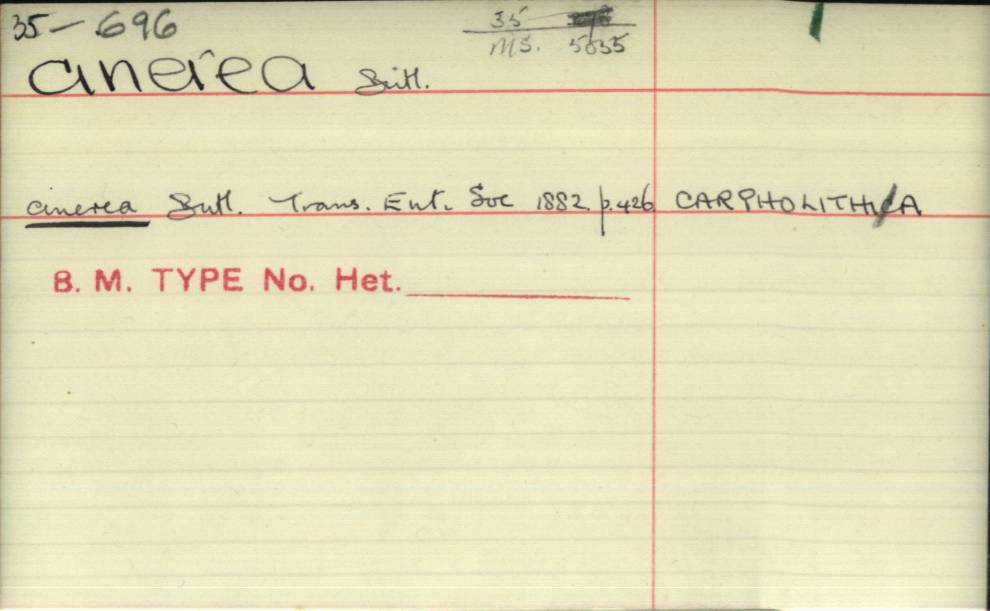 35-696
35
MS. 5035
cinerea Butl.
cinerea Butl. Trans. Ent. Soc 1882. p.426. CARPHOLITHA
B. M. TYPE No. Het.